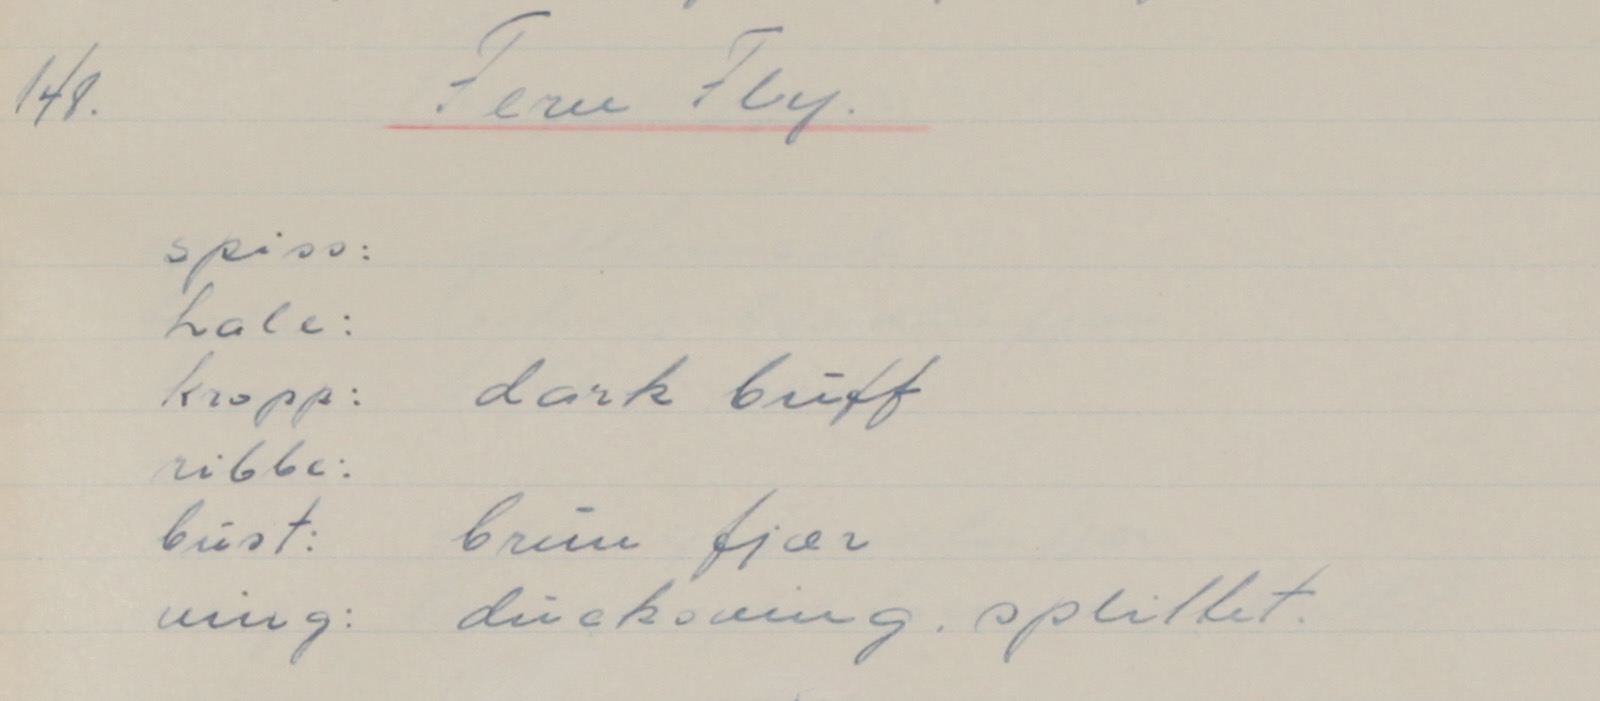 148. Fern Fly.
spiss:
hale:
kropp: dark buff
ribbe:
bust: brun fjær
ving: duckswing. splittet.